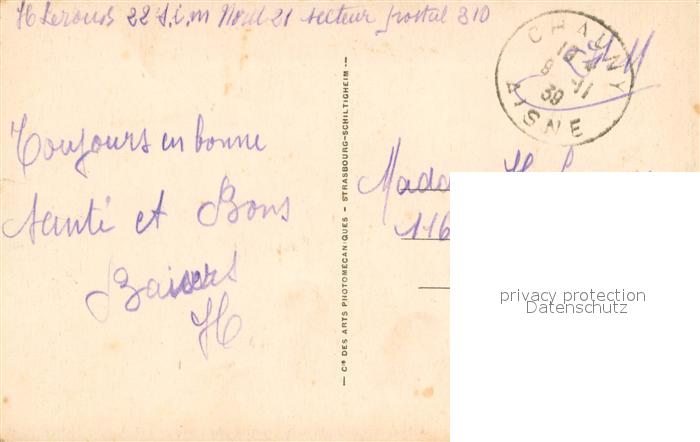 22 S.i.m Nord 21 secteur postal 310
CHAUNY
18
8 - 11
39
AISNE
F M
Toujours en bonne
santé et Bons
Baisers
H
Cie DES ARTS PHOTOMÉCANIQUES - STRASBOURG-SCHILTIGHEIM
116
privacy protection
Datenschutz